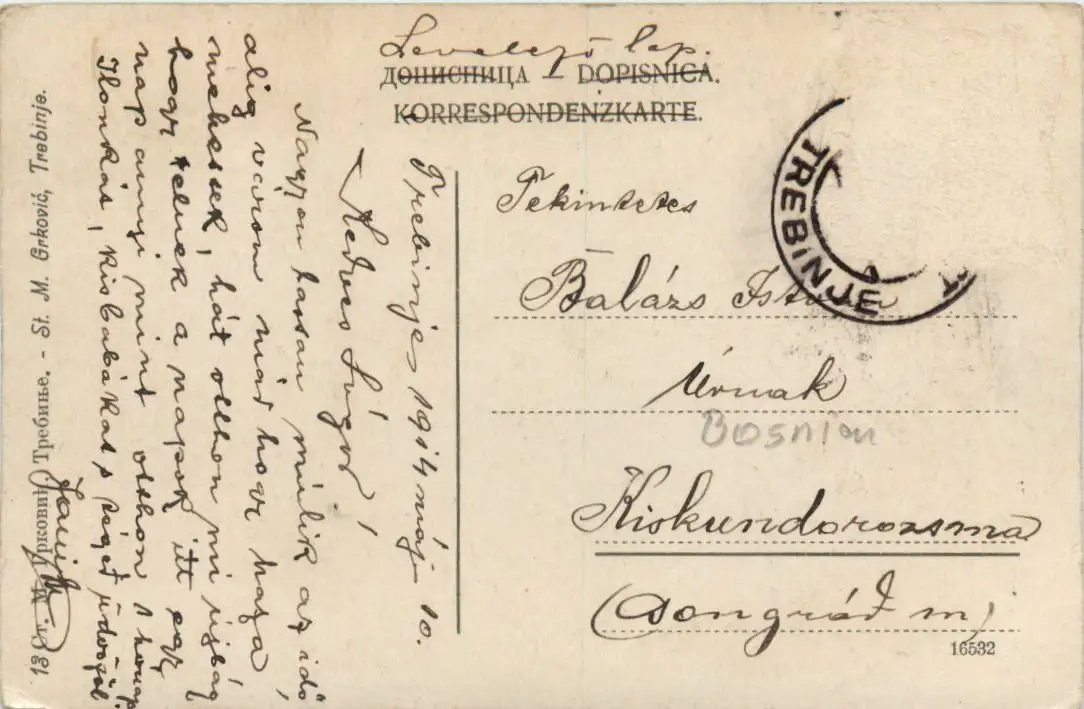 Levelező lap.
ДОПИСНИЦА — DOPISNICA.
KORRESPONDENZKARTE.
TREBINJE
Tekintetes
Balázs István
Úrnak
Bosnien
Kiskundorozsma
(Csongrád m)
16532
Trebinje, 1914 máj. 10.
Kedves Sógor!
Nagyon lassan múlik az idő
alig várom már hogy haza
mehessek, hát otthon mi újság
hogy telnek a napok itt egy
nap annyi mint otthon 1 hónap
Ilonkás, kisbabákat s téged üdvözöl
Требиње. - St. M. Grković, Trebinje.